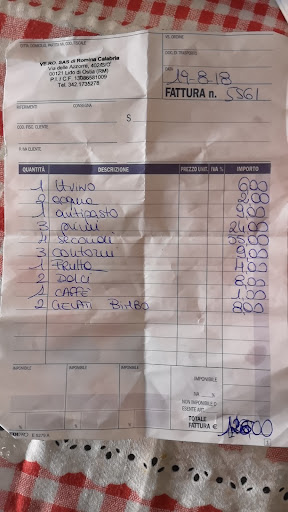 VE.RO. SAS di Romina Calabria
Via delle Azzorre, 402/407
00121 Lido di Ostia (RM)
Tel. 342.1735278
N. ORDINE
19-8-18
FATTURA n. 5561
RIFERIMENTI CONSEGNA
S
COD. FISC. CLIENTE
P. IVA CLIENTE
QUANTITÀ DESCRIZIONE PREZZO UNIT. IVA % IMPORTO
1 lt vino 6,00
2 acqua 2,00
1 antipasto 9,00
3 primi 24,00
4 secondi
3 contorni 9,00
1 Frutta 4,00
2 DOLCI 8,00
1 CAFFÈ 1,00
2 GELATI BIMBO 8,00
IMPONIBILE IMPONIBILE IMPONIBILE IMPONIBILE
IVA
NON IMPONIBILE O
ESENTE ART.
TOTALE
FATTURA €